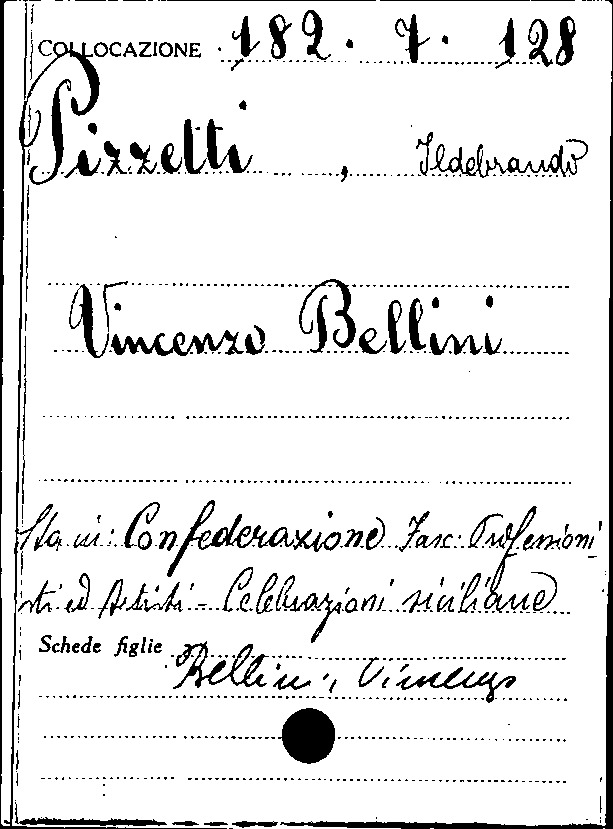 COLLOCAZIONE 182. 7. 128
Pizzetti, Ildebrando
Vincenzo Bellini
Sta in: Confederazione Fasc: Professioni
sti ed Artisti - Celebrazioni siciliane
Schede figlie Bellini, Vincenzo